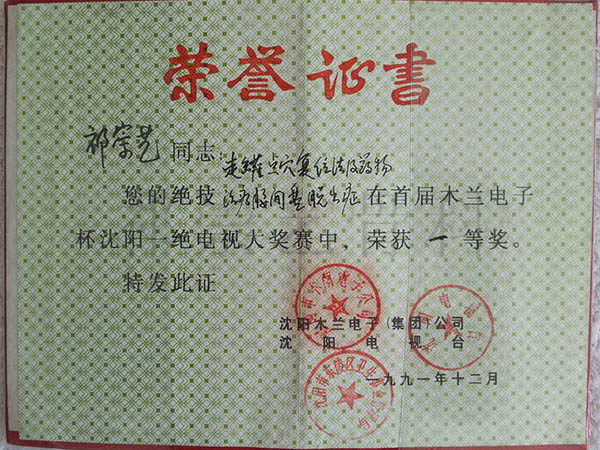 荣誉证书
祁崇艺 同志:走罐点穴复位法及药物
您的绝技治疗腰间盘脱出症在首届木兰电子
杯沈阳一绝电视大奖赛中，荣获一等奖。
特发此证
沈阳木兰电子(集团)公司
沈阳电视台
一九九一年十二月